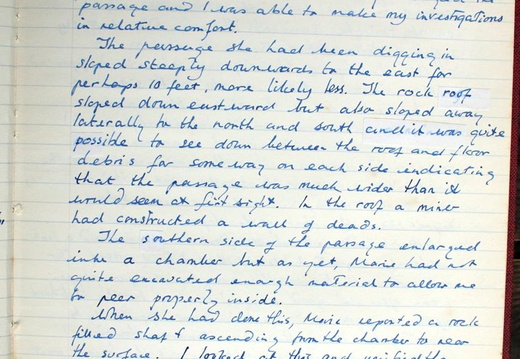 passage and I was able to make my investigations
in relative comfort.
The passage she had been digging in
sloped steeply downwards to the east for
perhaps 10 feet, more likely less. The rock roof
sloped down eastward but also sloped away
laterally to the north and south and it was quite
possible to see down between the roof and floor
debris for some way on each side indicating
that the passage was much wider than it
would seem at first sight. In the roof a miner
had constructed a wall of deads.
The southern side of the passage enlarged
into a chamber but as yet, Marie had not
quite excavated enough material to allow me
to peer properly inside.
When she had done this, Marie reported a rock
filled shaft ascending from the chamber to near
the surface. I looked at this and